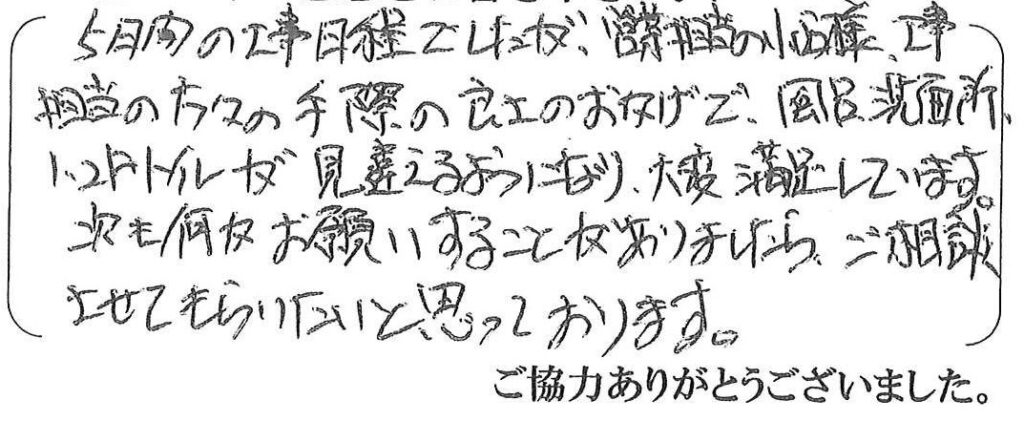 5日間の工事日程でしたが、営業担当の小西様、工事
担当の方々の手際の良さのおかげで、風呂、洗面所、
1、2Fトイレが見違えるようになり、大変満足しています。
次も何かお願いすることがありましたら、ご相談
させてもらいたいと思っております。
ご協力ありがとうございました。